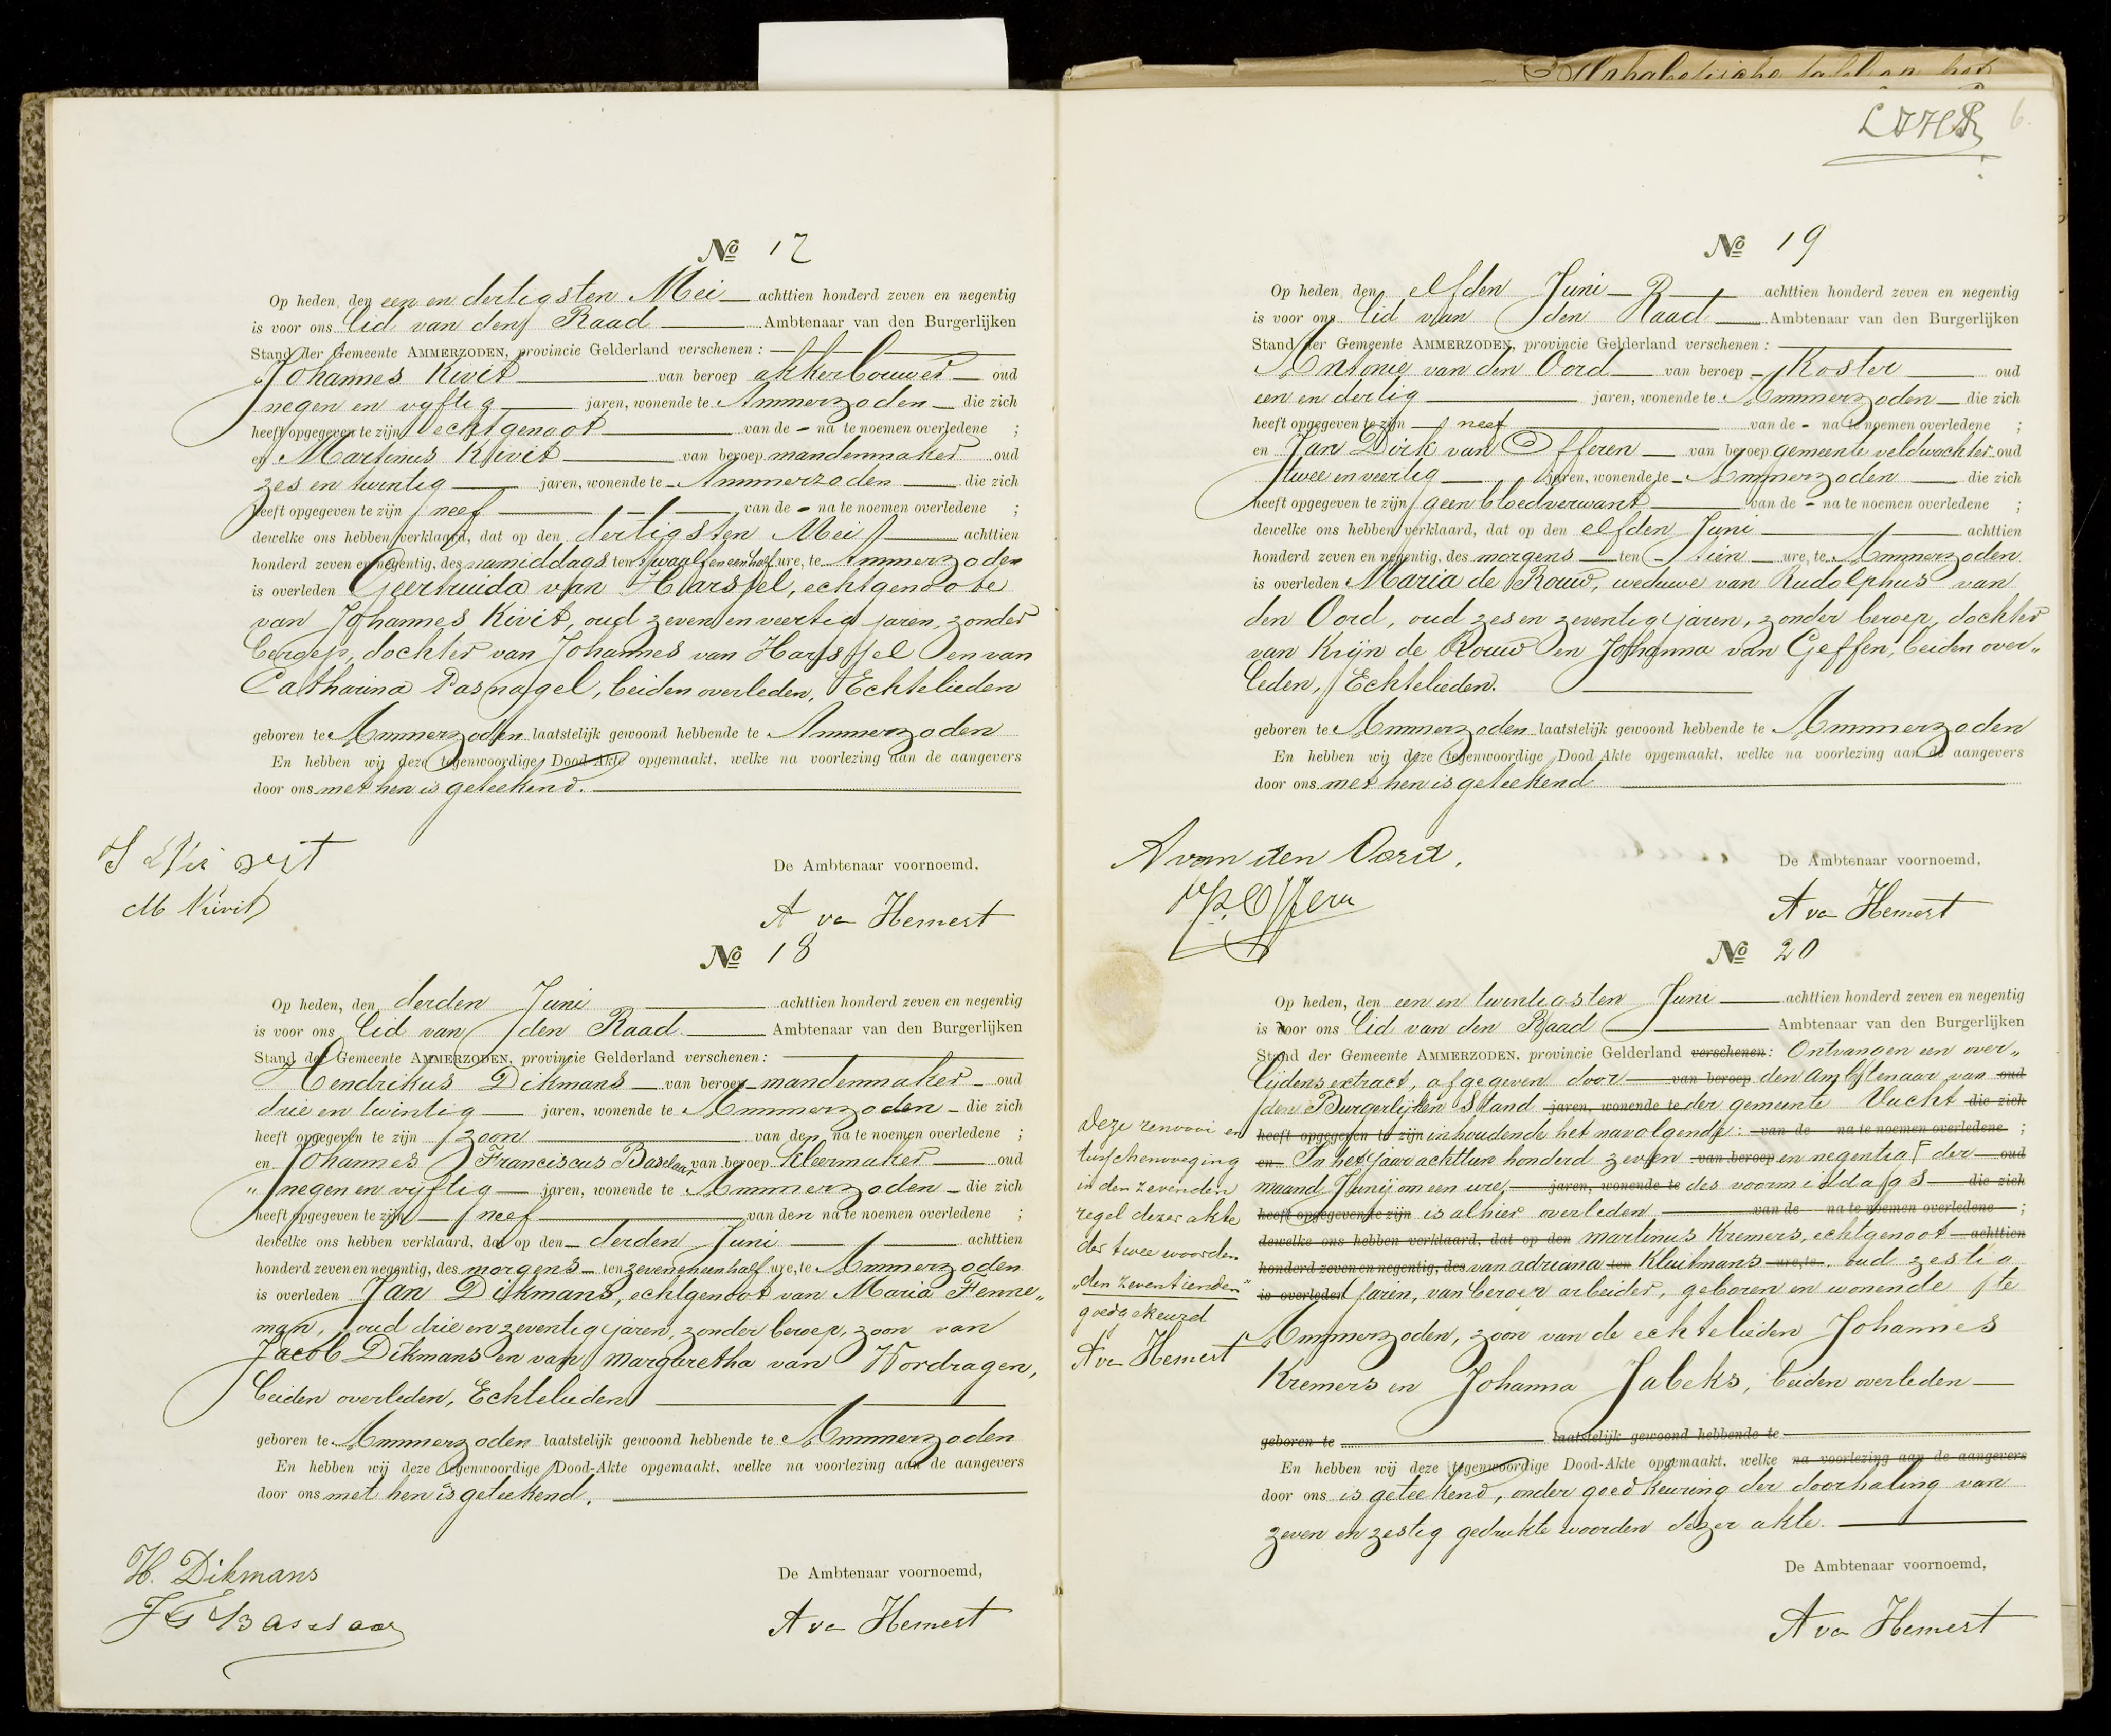 Alphabetische tafel op het
6.
Nº 17
Op heden, den een en dertigsten Mei achttien honderd zeven en negentig
is voor ons Lid van den Raad Ambtenaar van den Burgerlijken
Stand der Gemeente AMMERZODEN, provincie Gelderland verschenen:
Johannes Kivit van beroep akkerbouwer oud
negen en vyftig jaren, wonende te Ammerzoden die zich
heeft opgegeven te zijn echtgenoot van de - na te noemen overledene ;
en Martinus Kivit van beroep mandenmaker oud
zes en twintig jaren, wonende te Ammerzoden die zich
heeft opgegeven te zijn neef van de - na te noemen overledene ;
dewelke ons hebben verklaard, dat op den dertigsten Mei achttien
honderd zeven en negentig, des namiddags ten twaalf en een half ure, te Ammerzoden
is overleden Geertruida van Harssel, echtgenoote
van Johannes Kivit, oud zeven en veertig jaren, zonder
beroep, dochter van Johannes van Harssel en van
Catharina Pasnagel, beiden overleden, Echtelieden
geboren te Ammerzoden laatstelijk gewoond hebbende te Ammerzoden
En hebben wij deze tegenwoordige Dood-Akte opgemaakt, welke na voorlezing aan de aangevers
door ons met hen is geteekend.
De Ambtenaar voornoemd,
M Kivit
A van Hemert
Nº 18
Op heden, den derden Juni achttien honderd zeven en negentig
is voor ons Lid van den Raad Ambtenaar van den Burgerlijken
Stand der Gemeente AMMERZODEN, provincie Gelderland verschenen:
Hendrikus Dikmans van beroep mandenmaker oud
drie en twintig jaren, wonende te Ammerzoden die zich
heeft opgegeven te zijn zoon van den na te noemen overledene ;
en Johannes Franciscus Baselaar van beroep kleermaker oud
" negen en vyftig jaren, wonende te Ammerzoden die zich
heeft opgegeven te zijn neef van den na te noemen overledene ;
dewelke ons hebben verklaard, dat op den derden Juni achttien
honderd zeven en negentig, des morgens ten zeven en een half ure, te Ammerzoden
is overleden Jan Dikmans, echtgenoot van Maria Fenne„
man, oud drie en zeventig jaren, zonder beroep, zoon van
Jacob Dikmans en van Margaretha van Wordragen,
beiden overleden, Echtelieden
geboren te Ammerzoden laatstelijk gewoond hebbende te Ammerzoden
En hebben wij deze tegenwoordige Dood-Akte opgemaakt, welke na voorlezing aan de aangevers
door ons met hen is geteekend.
De Ambtenaar voornoemd,
H. Dikmans
J F Baselaar
A van Hemert
Nº 19
Op heden, den elfden Juni achttien honderd zeven en negentig
is voor ons Lid van den Raad Ambtenaar van den Burgerlijken
Stand der Gemeente AMMERZODEN, provincie Gelderland verschenen:
Antonie van den Oord van beroep Koster oud
een en dertig jaren, wonende te Ammerzoden die zich
heeft opgegeven te zijn neef van de - na te noemen overledene ;
en Jan Dirk van Offeren van beroep gemeente veldwachter oud
twee en veertig jaren, wonende te Ammerzoden die zich
heeft opgegeven te zijn geen bloedverwant van de - na te noemen overledene ;
dewelke ons hebben verklaard, dat op den elfden Juni achttien
honderd zeven en negentig, des morgens ten tien ure, te Ammerzoden
is overleden Maria de Rouw, weduwe van Rudolphus van
den Oord, oud zes en zeventig jaren, zonder beroep, dochter
van Krijn de Rouw en Johanna van Geffen, beiden over„
leden, Echtelieden.
geboren te Ammerzoden laatstelijk gewoond hebbende te Ammerzoden
En hebben wij deze tegenwoordige Dood Akte opgemaakt, welke na voorlezing aan de aangevers
door ons met hen is geteekend
De Ambtenaar voornoemd,
A van den Oord.
A van Hemert
Nº 20
Op heden, den een en twintigsten Juni achttien honderd zeven en negentig
is voor ons Lid van den Raad Ambtenaar van den Burgerlijken
Stand der Gemeente AMMERZODEN, provincie Gelderland verschenen: Ontvangen een over„
lijdens extract, afgegeven door van beroep den Ambtenaar van oud
den Burgerlijken Stand jaren, wonende te der gemeente Vucht die zich
heeft opgegeven te zijn inhoudende het navolgende: van de na te noemen overledene ;
en In het jaar achttien honderd zeven van beroep en negentig ┌ der oud
maand Junij om een ure, jaren, wonende te des voormiddags die zich
heeft opgegeven te zijn is alhier overleden van de na te noemen overledene ;
dewelke ons hebben verklaard, dat op den Martinus Kremers, echtgenoot achttien
honderd zeven en negentig, des van Adriana ten Kluitmans ure, te oud zestig
is overleden jaren, van beroep arbeider, geboren en wonende te
Ammerzoden, zoon van de echtelieden Johannes
Kremers en Johanna Jabeks, beiden overleden
geboren te laatstelijk gewoond hebbende te
En hebben wij deze tegenwoordige Dood-Akte opgemaakt, welke na voorlezing aan de aangevers
door ons is geteekend, onder goedkeuring der doorhaling van
zeven en zestig gedrukte woorden dezer akte.
De Ambtenaar voornoemd,
A van Hemert
Deze renvooi en
tusschenvoeging
in den zevenden
regel dezer akte
der twee woorden
„den zeventienden"
goedgekeurd
A van Hemert